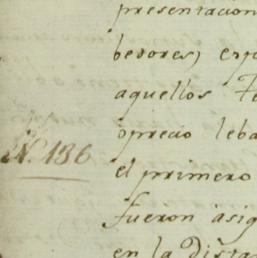 presentacion
bedores) exp
aquellos Fe
oprecio leba
Nº. 136
el primero
fueron asig
en la Dista